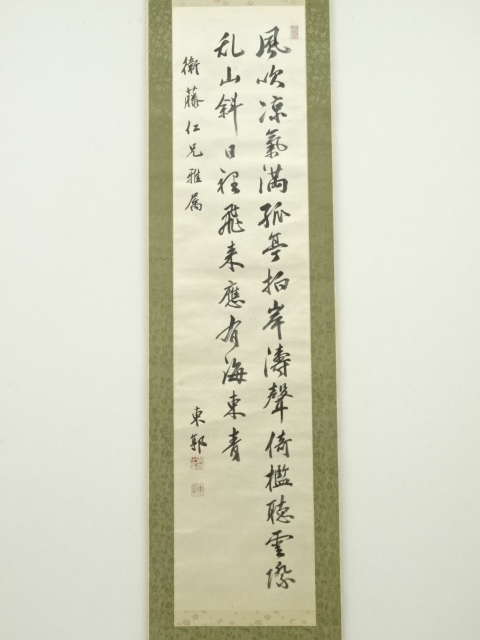 風吹涼氣滿孤亭拍岸濤聲倚檻聽雲際
乱山斜日裡飛来應有海東青
衛藤仁兄雅属
東郭